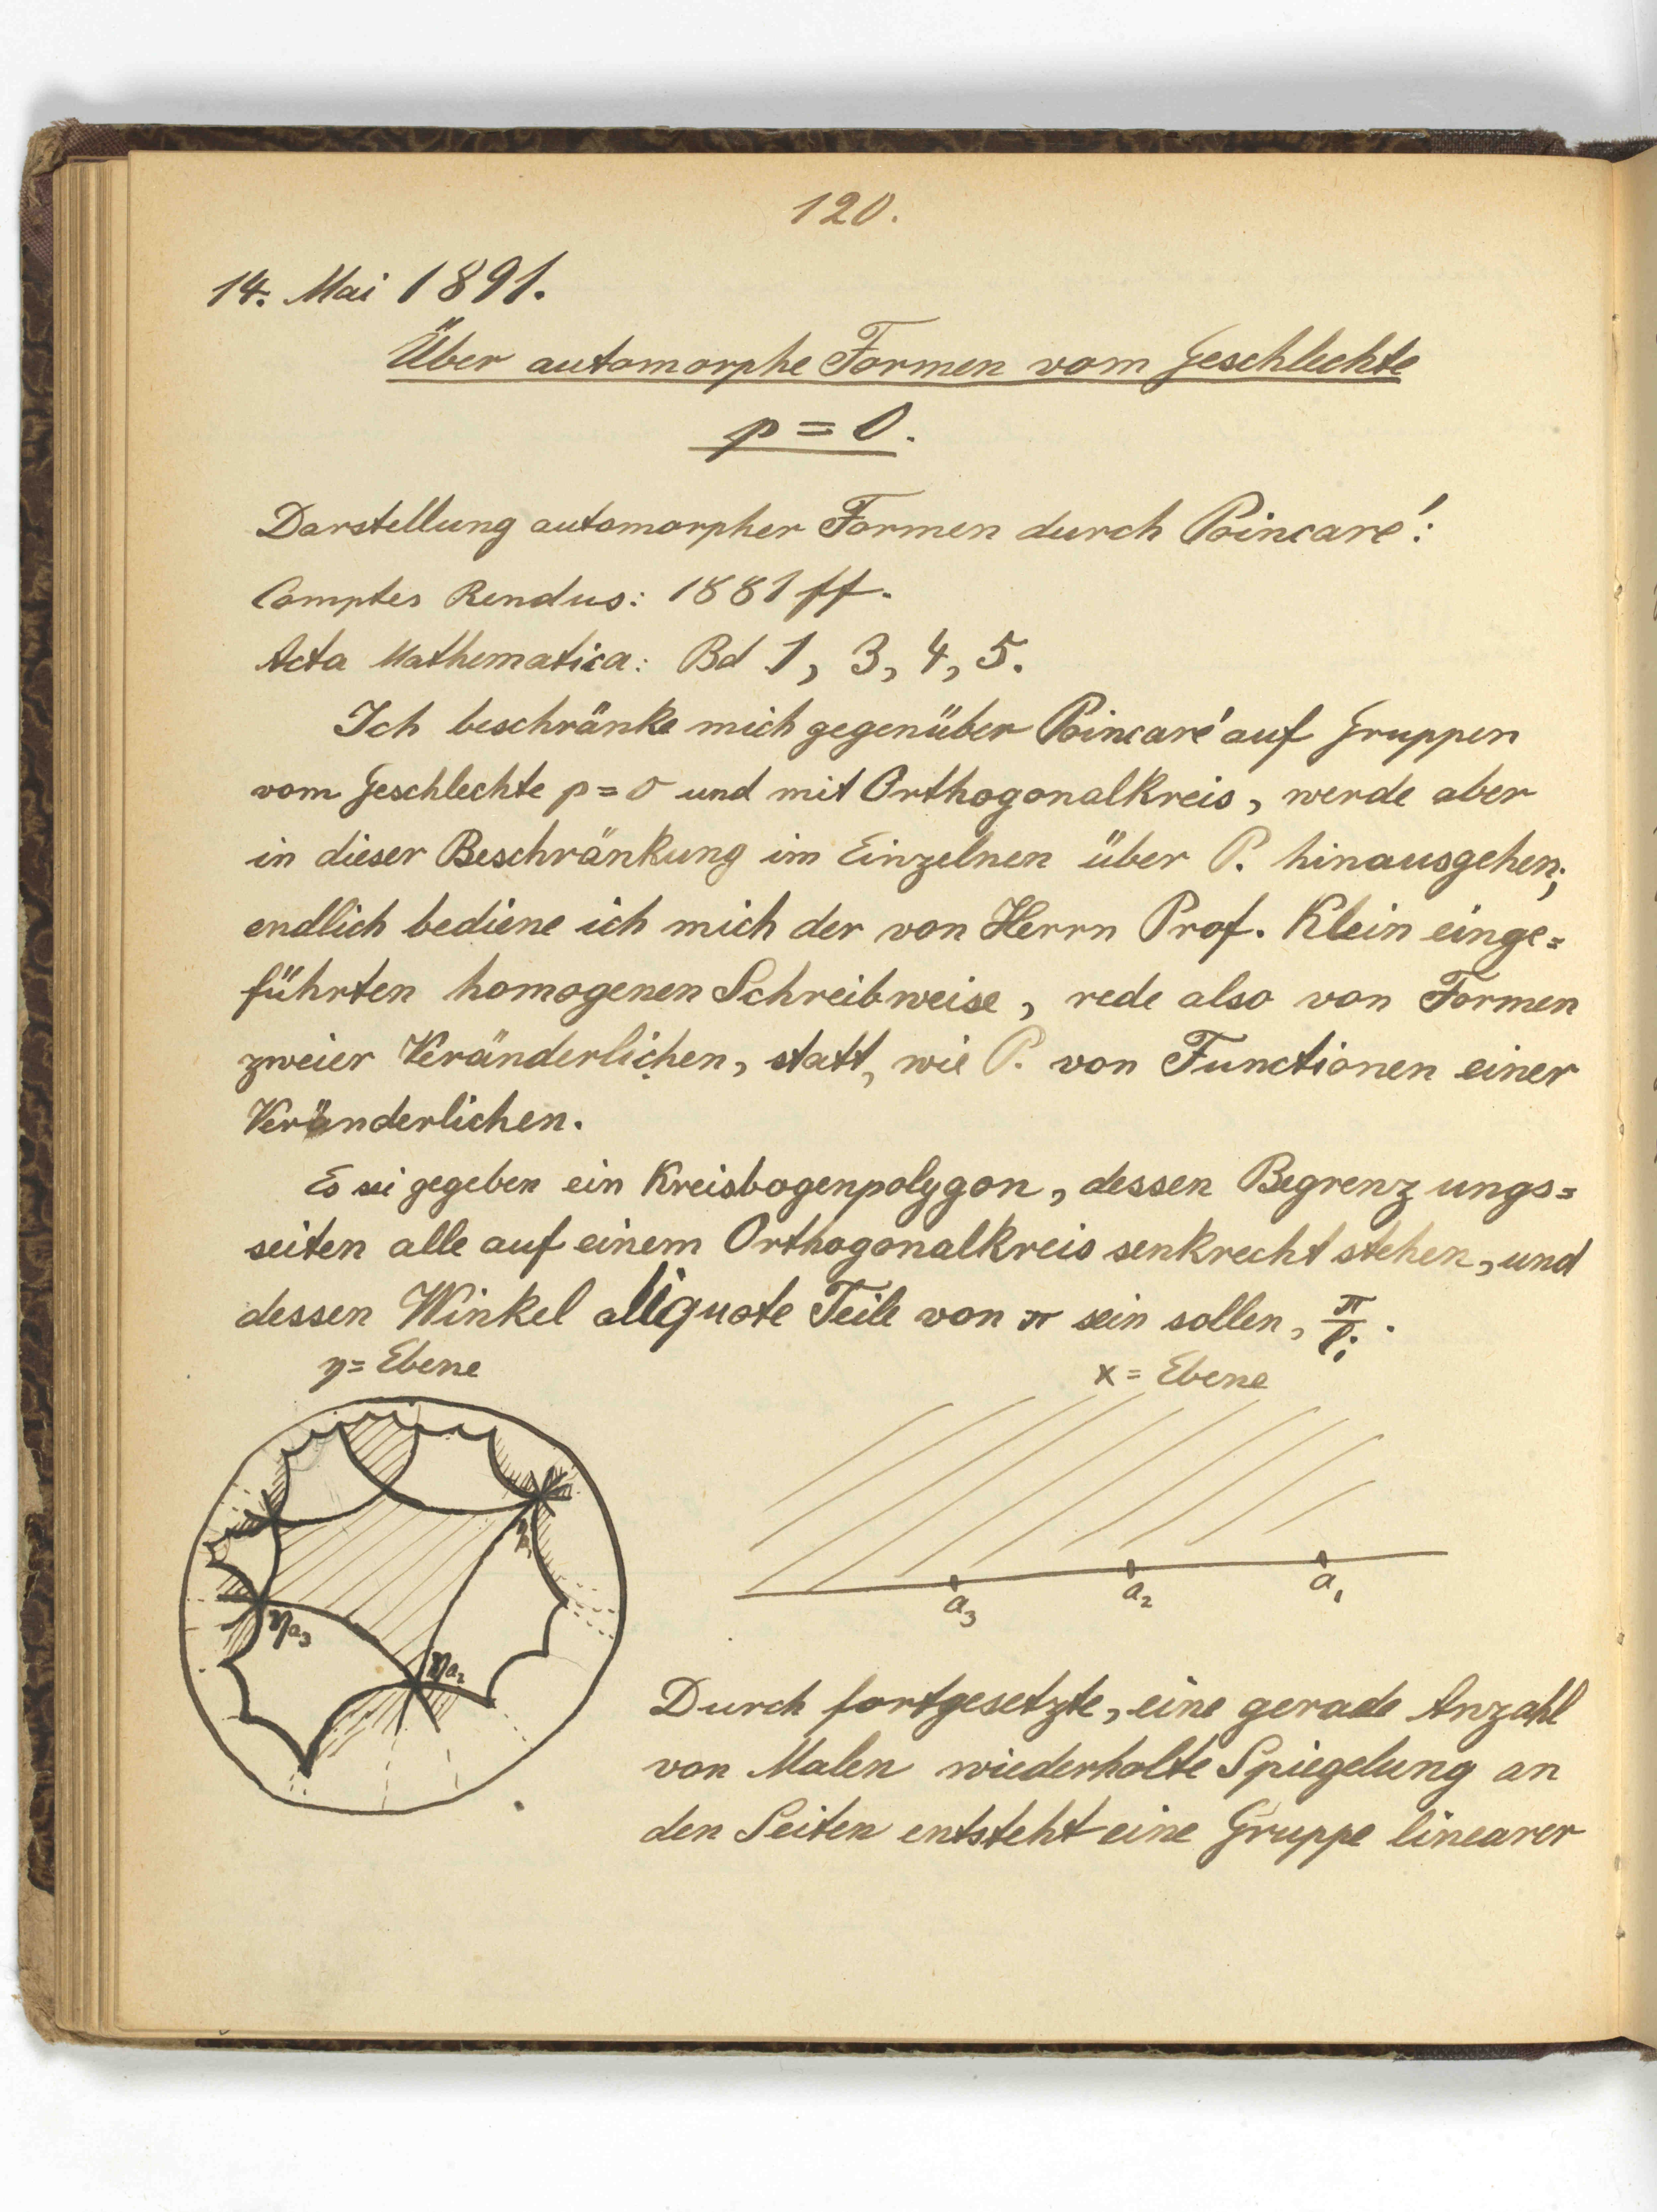 120.
14. Mai 1891.
Über automorphe Formen vom Geschlechte
p=0.
Darstellung automorpher Formen durch Poincaré:
Comptes Rendus: 1881 ff.
Acta Mathematica: Bd 1, 3, 4, 5.
Ich beschränke mich gegenüber Poincaré auf Gruppen
vom Geschlechte p=0 und mit Orthogonalkreis, werde aber
in dieser Beschränkung im Einzelnen über P. hinausgehen;
endlich bediene ich mich der von Herrn Prof. Klein einge=
führten homogenen Schreibweise, rede also von Formen
zweier Veränderlichen, statt, wie P. von Functionen einer
Veränderlichen.
Es sei gegeben ein Kreisbogenpolygon, dessen Begrenzungs=
seiten alle auf einem Orthogonalkreis senkrecht stehen, und
dessen Winkel aliquote Teile von π sein sollen, π/lᵢ.
η=Ebene
x=Ebene
ηa₃
ηa₂
a₃
a₂
a₁
Durch fortgesetzte, eine gerade Anzahl
von Malen wiederholte Spiegelung an
den Seiten entsteht eine Gruppe linearer